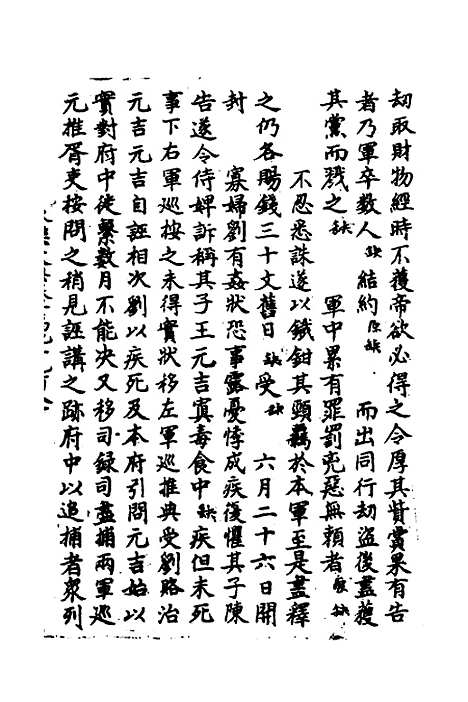 刼取財物經時不獲帝欲必得之令厚其賞賞果有告
者乃軍卒数人缺結約原缺 而出同行刼盗後盡獲
其黨而戮之缺 軍中累有罪罰兇惡無頼者原缺
不忍悉誅遂以鐵鉗其頸羈於本軍至是盡釋
之仍各賜錢三十文舊日缺受缺 六月二十六日開
封 寡婦劉有姦狀恐事露憂悸成疾復懼其子陳
告遂令侍婢訴稱其子王元吉寘毒食中缺疾但未死
事下右軍巡按之未得實狀移左軍巡推典受劉賂治
元吉元吉自誣相次劉以疾死及本府引問元吉始以
實對府中徒繫数月不能决又移司録司盡捕兩軍巡
元推胥吏按問之稍見誣講之跡府中以追捕者衆列